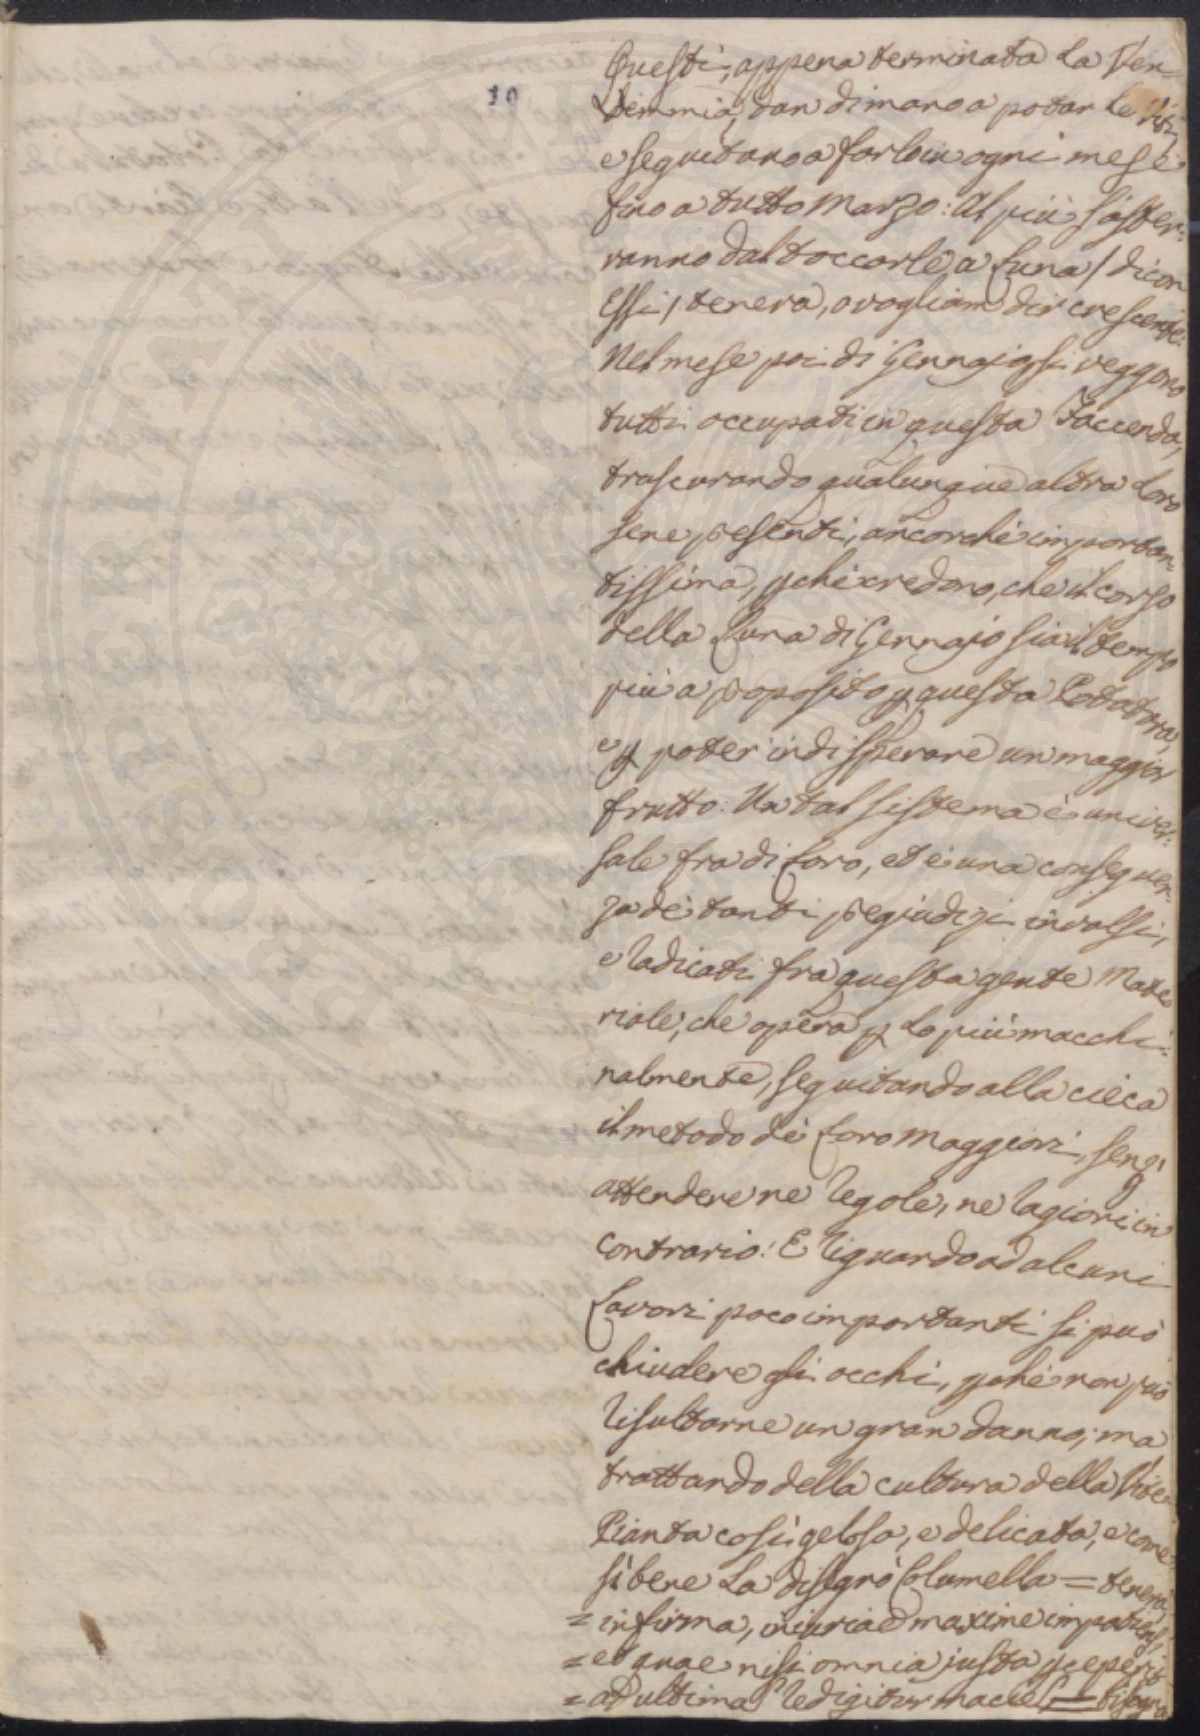 10
Questi, appena terminata la Ven=
demmia, dan di mano a potar le Viti,
e seguitano a farlo in ogni mese
fino a tutto Marzo: Al più s'aster-
ranno dal toccarle a Luna / dicon
Essi / tenera, o vogliam dir crescente.
Nel mese poi di Gennajo si veggono
tutti occupati in questa Faccenda,
trascurando qualunque altra loro
sene presenti, ancorchè importan-
tissima, pchè credono, che il corso
della Luna di Gennajo sia il tempo
più a proposito p questa Potatura,
e p poter indi sperare un maggior
frutto: Un tal sistema è univer-
sale fra di loro, ed è una conseguen-
za de' tanti pregiudizi invalsi,
e radicati fra questa gente mate
riale, che opera p lo più macchi-
nalmente, seguitando alla cieca
il metodo dei loro maggiori, senz'
attendere ne regole, ne ragioni in
contrario: E riguardo ad alcuni
lavori poco importanti si può
chiudere gli occhi, pchè non può
risultarne un gran danno; ma
trattando della cultura della Vite
Pianta così gelosa, e delicata, e come
sì bene la disegnò Columella = tenera,
= infirma, iniuriae maxime impatiens,
= et quae nisi omnia justa peeperit
= ad ultimam redigitur maciem = bisogna